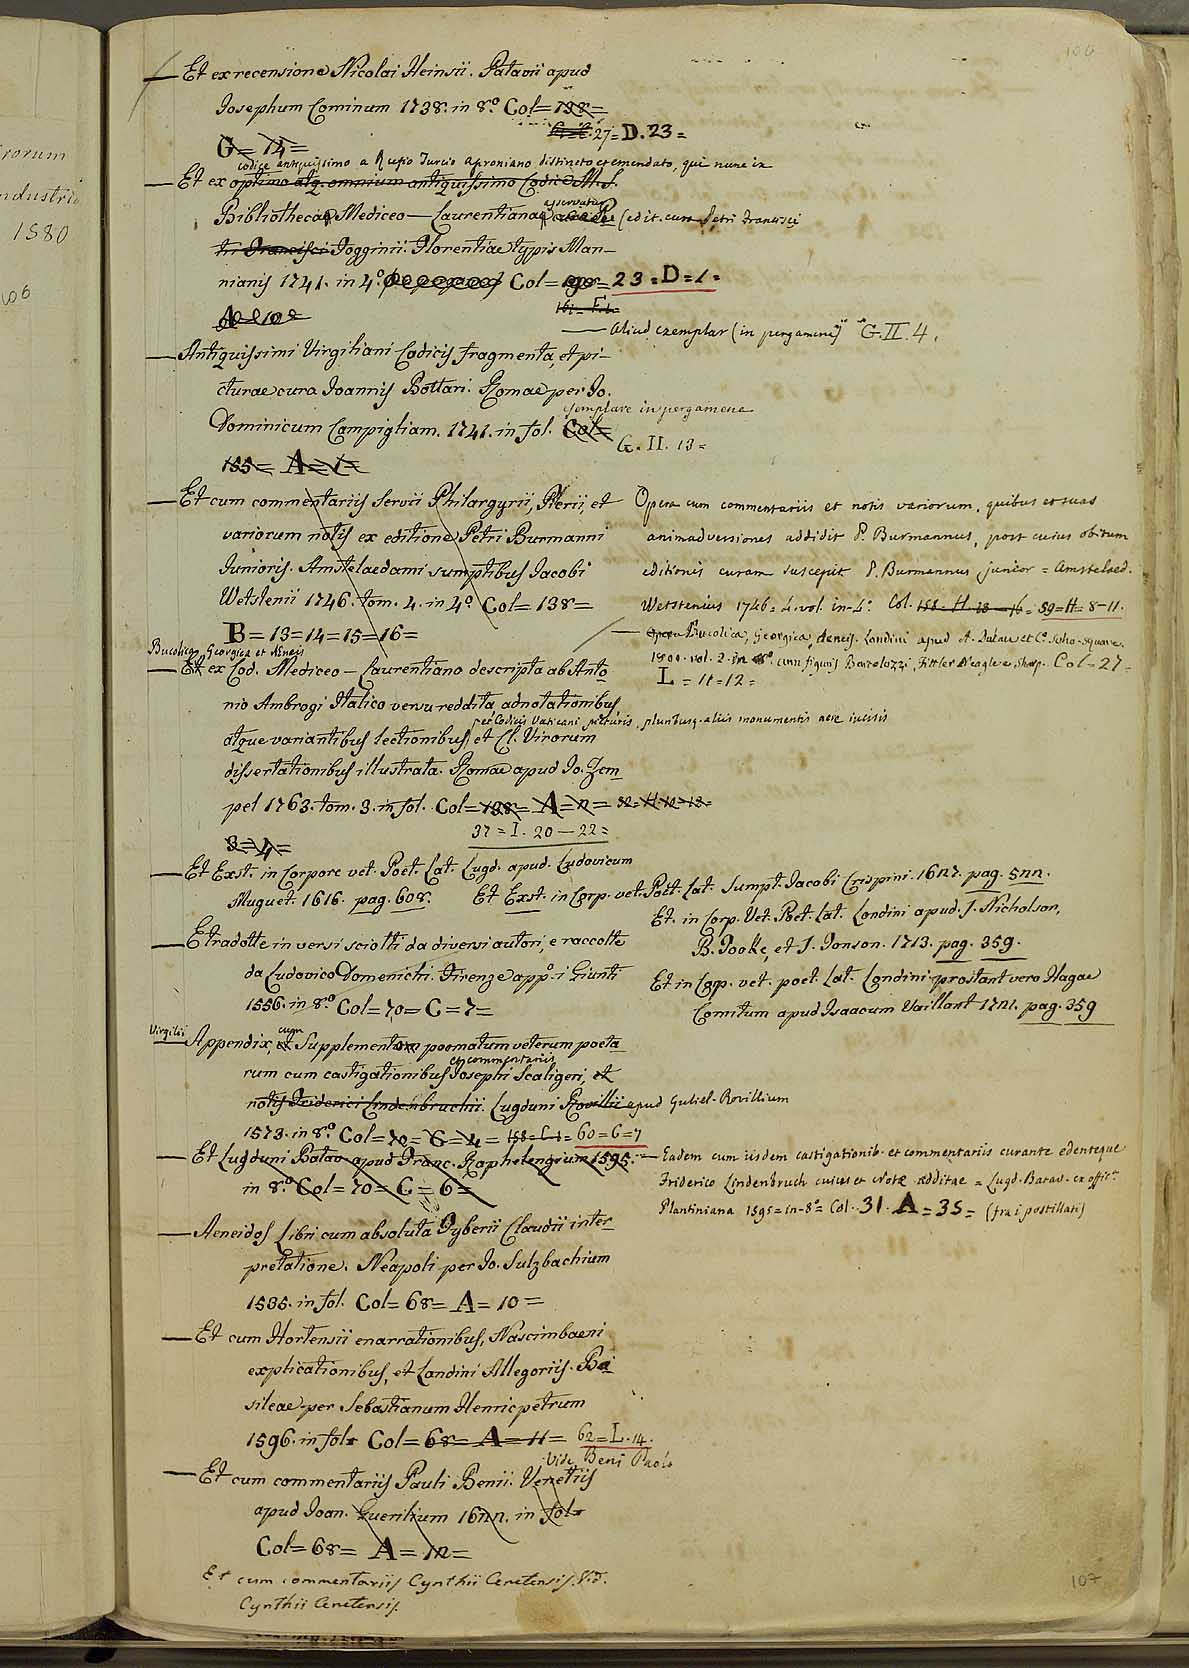 rorum
ndustria
1580
106
106
— Et ex recensione Nicolai Heinsii. Patavii apud
Josephum Cominum 1738. in 8.º Col= 138=
27= D. 23=
G= 14=
codice antiquissimo a Rufio Turcio Aproniano distincto et emendato, qui nunc in
— Et ex optimo atq. omnium antiquissimo Codic. M.S.
asservatur
Bibliothecae Mediceo-Laurentianae (edit. cura Petri Francisci
tri Francisci Fogginii. Florentiae typis Man-
nianis 1741. in 4.º Col= 23= D= 1=
A= 10=
— Aliud exemplar (in pergamena) G. II. 4.
— Antiquissimi Virgiliani Codicis fragmenta, et pi-
cturae cura Joannis Bottari. Romae per Jo.
exemplare in pergamena
Dominicum Campigliam. 1741. in fol. Col=
G. II. 13=
155= A= 1=
— Et cum commentariis Servii Philargyrii, Pierii, et
variorum notis ex editione Petri Burmanni
Junioris. Amstelaedami sumptibus Jacobi
Wetstenii 1746. tom. 4. in 4.º Col= 138=
B= 13= 14= 15= 16=
Opera cum commentariis et notis variorum, quibus et suas
animadversiones addidit P. Burmannus, post cuius obitum
editionis curam suscepit P. Burmannus junior = Amstelaed.
Wetstenius 1746= 4. vol. in-4.º Col. 158= H. 38-16= 59=H= 8-11.
— Opera Bucolica, Georgica, Aeneis. Londini apud A. Dulau et C.º Soho-Square
1800. vol. 2. in 8.º cum figuris Bartolozzi, Fittler Neagle e Sharp. Col= 27=
L= 11= 12=
Bucolica, Georgica et Aeneis
— Et ex Cod. Mediceo-Laurentiano descripta ab Anto
nio Ambrogi Italico versu reddita, adnotationibus
per Codicis Vaticani picturis, pluribusq. aliis monumentis aere incisis
atque variantibus lectionibus, et Cl. Virorum
dissertationibus illustrata. Romae apud Jo. Zem
pel 1763. tom. 3. in fol. Col= 138= A= 2=
37= I. 20-22=
3= 4=
— Et Exst. in Corpore vet. Poet. Lat. Lugd. apud Ludovicum
Muguet. 1616. pag. 608. Et Exst. in Corp. vet. Poet. Lat. Sumpt. Jacobi Crispini. 1627. pag. 522.
Et. in Corp. Vet. Poet. Lat. Londini apud J. Nicholson,
B. Tooke, et J. Tonson. 1713. pag. 359.
Et in Corp. vet. poet. Lat. Londini prostant vero Hagae
Comitum apud Isaacum Vaillant 1721. pag. 359
— E tradotte in versi sciolti da diversi autori, e raccolte
da Ludovico Domenichi. Firenze app.º i Giunti
1556. in 8.º Col= 70= C= 7=
Virgilii
cum
— Appendix, et Supplemento poematum veterum poeta
et commentariis
rum cum castigationibus Josephi Scaligeri, et
notis Friderici Lindenbruchii. Lugduni Rovillii apud Guliel. Rovillium
1573. in 8.º Col= 70= G= 4= 158= C-1= 60= C= 7
— Et Lugduni Batav. apud Franc. Raphelengium 1595.
in 8.º Col= 70= C= 6=
— Eadem cum iisdem castigationib. et commentariis curante edenteque
Friderico Lindenbruch cuius et Notae additae = Lugd. Batav. ex offic.
Plantiniana 1595= in-8.º= Col. 31. A= 35= (fra i postillati)
— Aeneidos Libri cum absoluta Tyberii Claudii inter
pretatione. Neapoli per Jo. Sulzbachium
1535. in fol. Col= 68= A= 10=
— Et cum Hortensii enarrationibus, Nascimbaeni
explicationibus, et Landini Allegoriis. Ba
sileae per Sebastianum Henricpetrum
1596. in fol. Col= 68= A= 11= 62= L. 14.
Vide Beni Paolo
— Et cum commentariis Pauli Benii. Venetiis
apud Joan. Guerilium 1622. in fol.
Col= 68= A= 12=
Et cum commentariis Cynthii Cenetensis. Vid.
Cynthii Cenetensis.
107